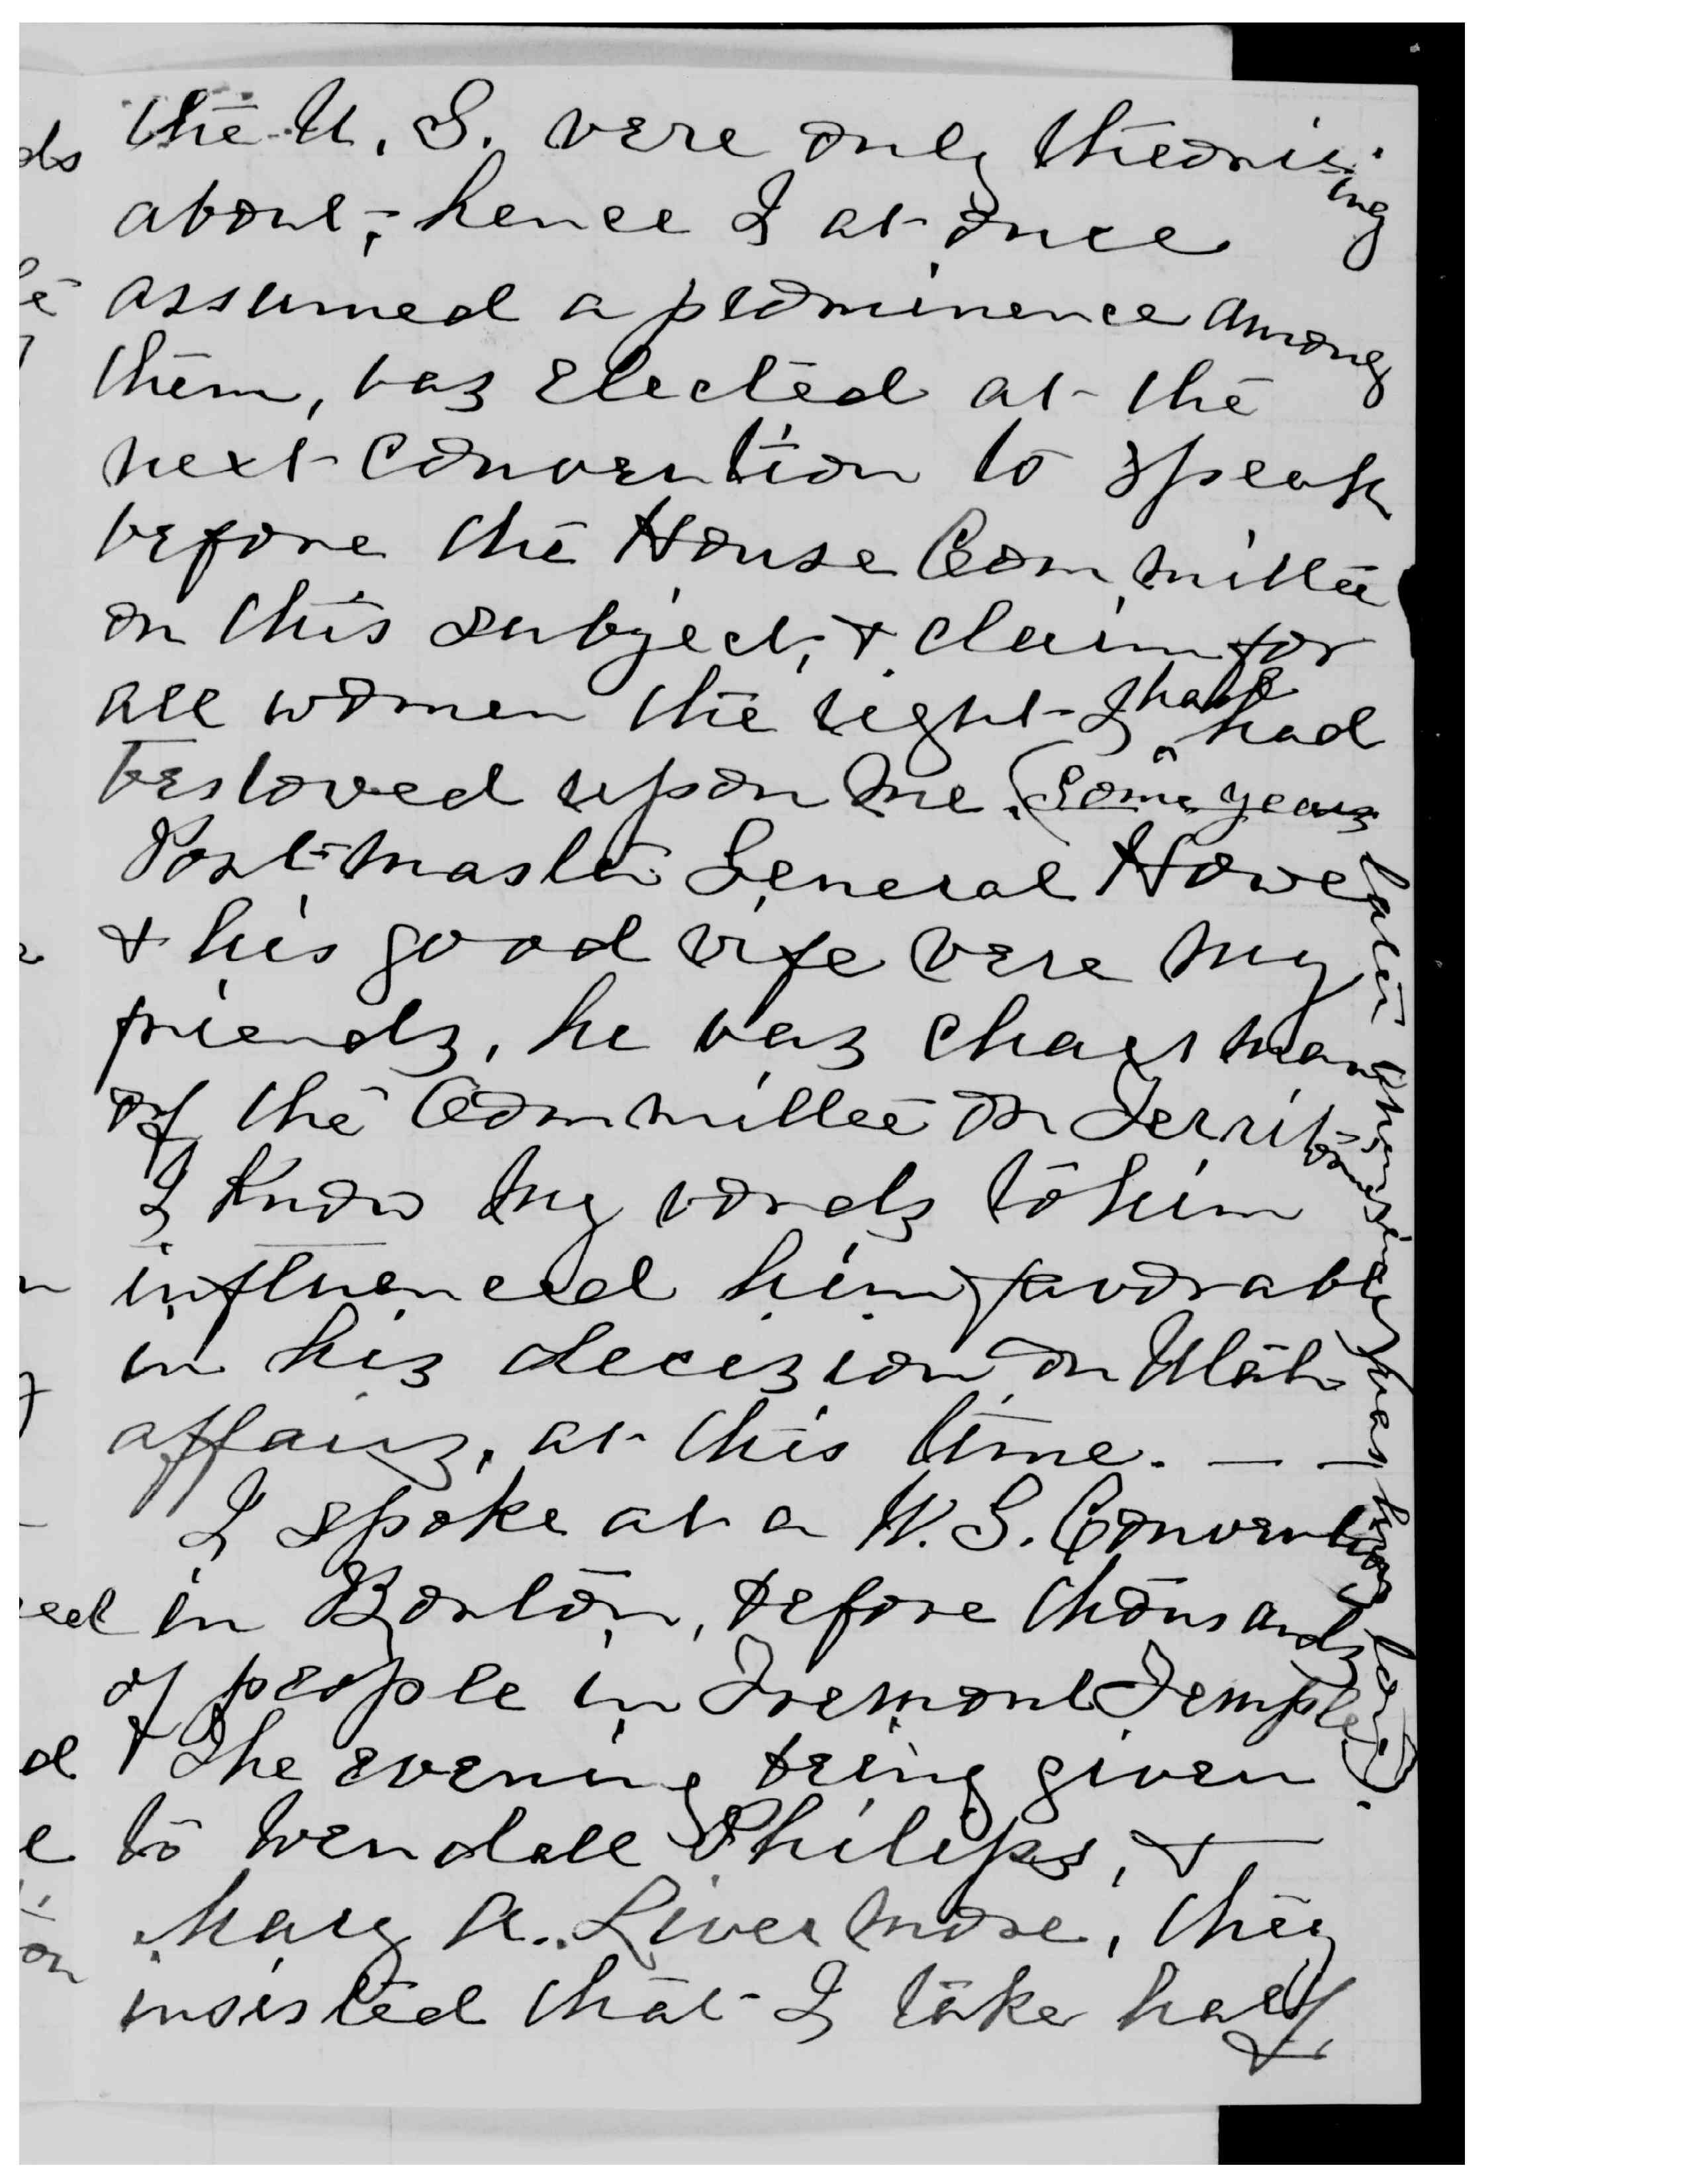 the U. S. were only theorizing
about; – hence I at once
assumed a prominence among
them, was elected at the
next Convention to speak
before the House Committee
on this subject, & claim for
all women the right I have had
bestowed upon me. (Some years
later was
Post-master General Howe
& his good wife were my
friends, he was chairman
of the Committee on Territories
I know my words to him
influenced him favorably
in his decision on Utah
affairs, at this time. — —
I spoke at a W. S. Convention
in Boston, before thousands
of people in Tremont Temple
& The evening being given
to Wendall Philips, &
Mary A. Livermore, they
insisted that I take half